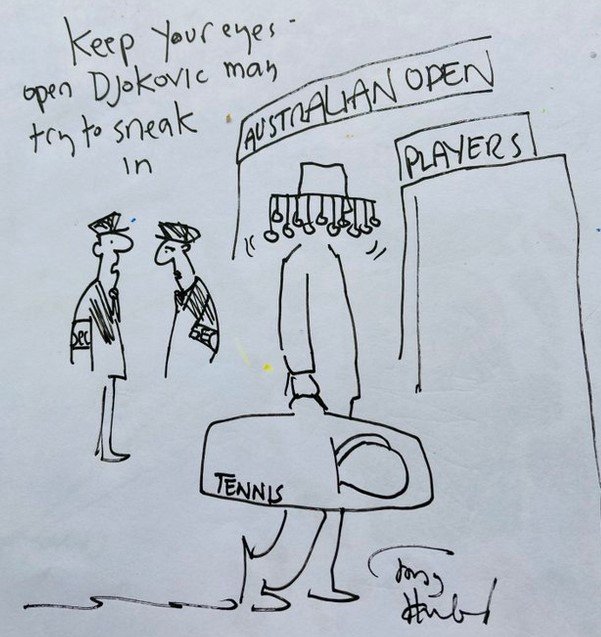 Keep your eyes-
open Djokovic may
try to sneak
in
AUSTRALIAN OPEN
PLAYERS
SEC
SEC
TENNIS